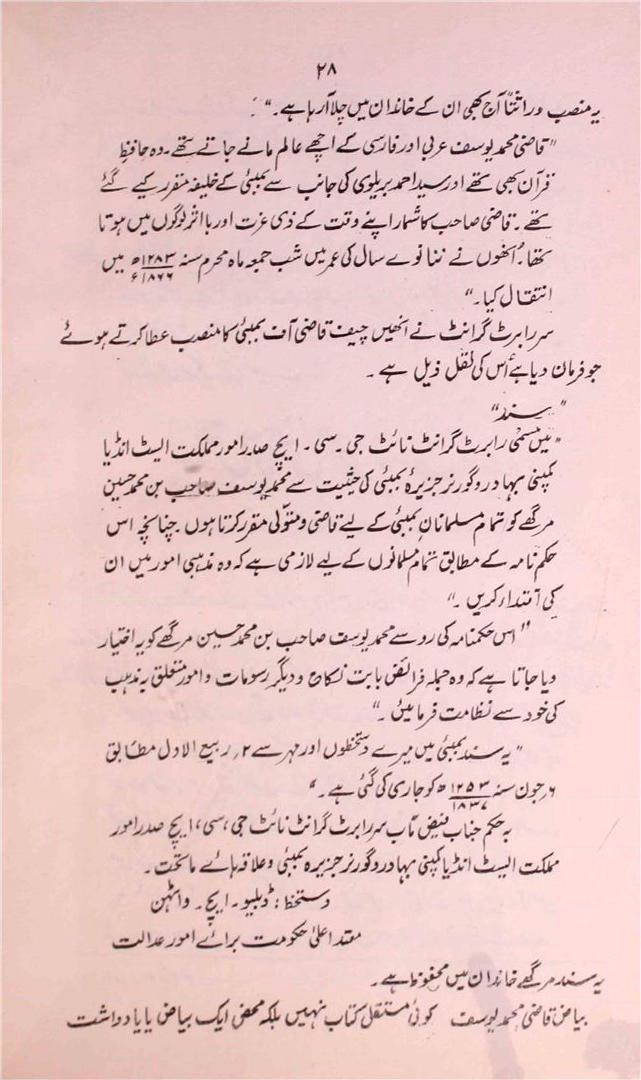 ۲۸
یہ منصب وراثتاً آج بھی ان کے خاندان میں چلا آرہا ہے۔"
"قاضی محمد یوسف عربی اور فارسی کے اچھے عالم مانے جاتے تھے۔ وہ حافظِ
قرآن بھی تھے اور سید احمد بریلوی کی جانب سے بمبئی کے خلیفہ مقرر کیے گئے
تھے۔ قاضی صاحب کا شمار اپنے وقت کے ذی عزت اور بااثر لوگوں میں ہوتا
تھا۔ اُنھوں نے ننانوے سال کی عمر میں شب جمعہ ماہ محرم سنہ ۱۲۸۳ھ / ۱۸۶۶ء میں
انتقال کیا۔"
سر رابرٹ گرانٹ نے انھیں چیف قاضی آف بمبئی کا منصب عطا کرتے ہوئے
جو فرمان دیا ہے اُس کی نقل ذیل ہے۔
"سند"
"میں مسمّٰی رابرٹ گرانٹ نائٹ جی۔ سی۔ ایچ صدر امور مملکت الیسٹ انڈیا
کمپنی بہادر و گورنر جزیرۂ بمبئی کی حیثیت سے محمد یوسف صاحب بن محمد حسین
مرگھے کو تمام مسلمانانِ بمبئی کے لیے قاضی و متولّی مقرر کرتا ہوں۔ چنانچہ اس
حکم نامہ کے مطابق تمام مسلمانوں کے لیے لازمی ہے کہ وہ مذہبی امور میں ان
کی اقتدار کریں۔"
"اس حکمنامہ کی رو سے محمد یوسف صاحب بن محمد حسین مرگھے کو یہ اختیار
دیا جاتا ہے کہ وہ جملہ فرائض بابت نکاح و دیگر رسومات و امور متعلق بہ مذہب
کی خود سے نظامت فرمائیں۔"
"یہ سند بمبئی میں میرے دستخطوں اور مہر سے ۲؍ ربیع الاول مطابق
۶؍ جون سنہ ۱۲۵۳ھ / ۱۸۳۷ کو جاری کی گئی ہے۔"
بہ حکم جناب فیض مآب سر رابرٹ گرانٹ نائٹ جی، سی، ایچ صدر امور
مملکت الیسٹ انڈیا کمپنی بہادر و گورنر جزیرہ بمبئی و علاقہ ہائے ماتحت۔
دستخط: ڈبلیو۔ ایچ۔ واٹھن
معتمد اعلیٰ حکومت برائے امور عدالت
یہ سند مرگھے خاندان میں محفوظ ہے۔
بیاض قاضی محمد یوسف کوئی مستقل کتاب نہیں بلکہ محض ایک بیاض یا یادداشت